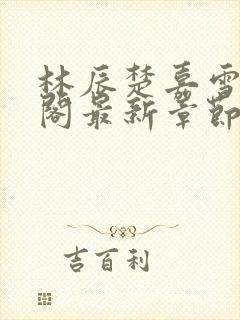 林辰楚嘉雪
阁最新章节
吉百利